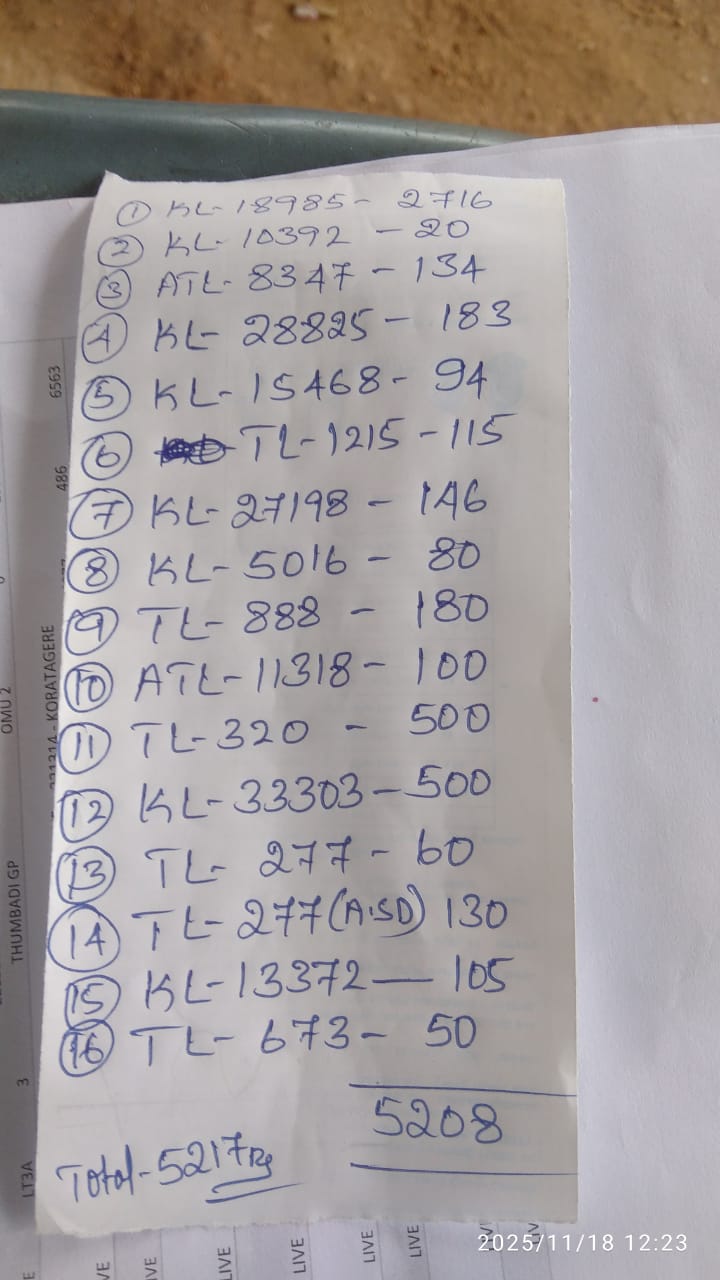 ① KL-18985- 2716
② KL-10392 - 20
③ ATL-8347 - 134
④ KL- 28825- 183
⑤ KL-15468- 94
⑥ TL-1215 -115
⑦ KL-27198 - 146
⑧ KL-5016- 80
⑨ TL-888 - 180
⑩ ATL-11318- 100
⑪ TL-320 - 500
⑫ KL-33303-500
⑬ TL- 277- 60
⑭ TL-277(A.SD) 130
⑮ KL-13372— 105
⑯ TL- 673- 50
5208
Total-5217Rs
6563
486
221314 - KORATAGERE
OMU 2
THUMBADI GP
3
LT3A
LIVE
LIVE
LIVE
LIVE
LIVE
LIVE
2025/11/18 12:23